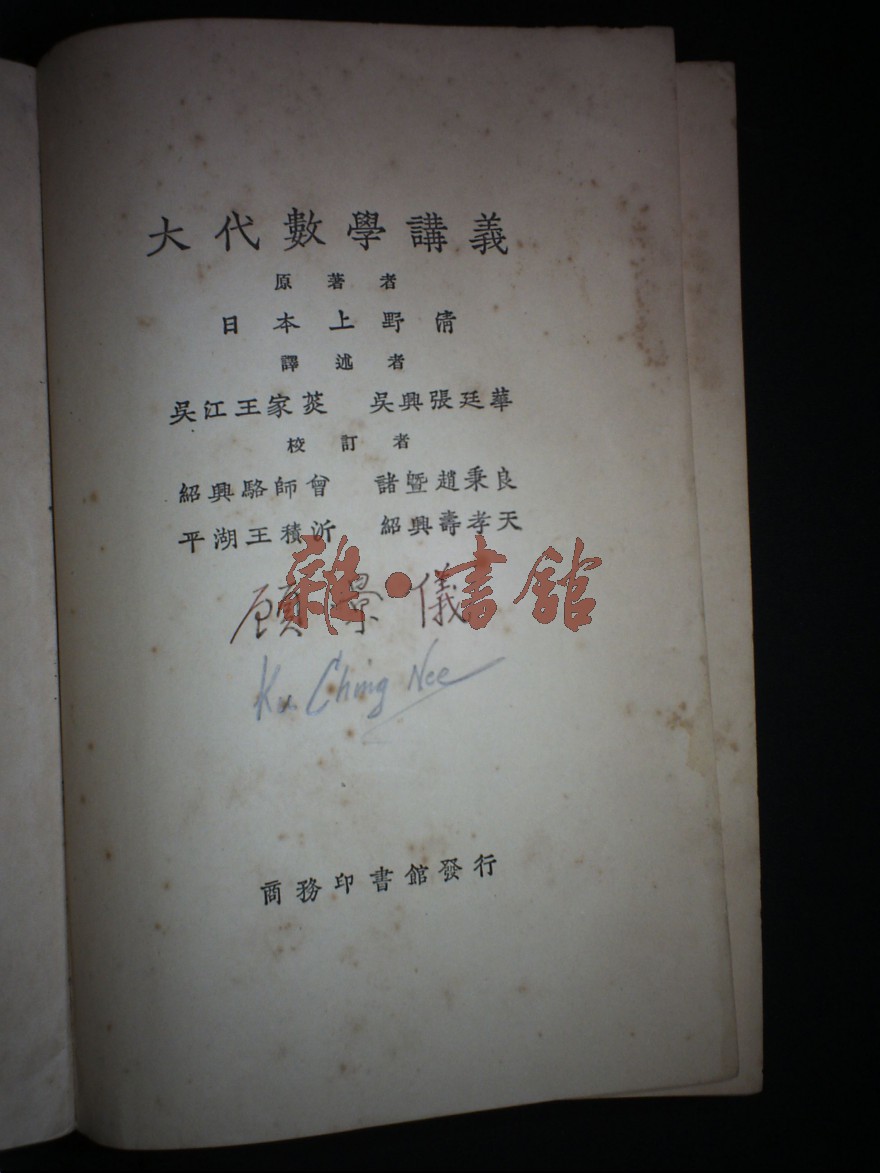 大代數學講義
原著者
日本上野清
譯述者
吳江王家菼 吳興張廷華
校訂者
紹興駱師曾 諸暨趙秉良
平湖王積沂 紹興壽孝天
雜·書館
顧景儀
Ku Ching Nee
商務印書館發行